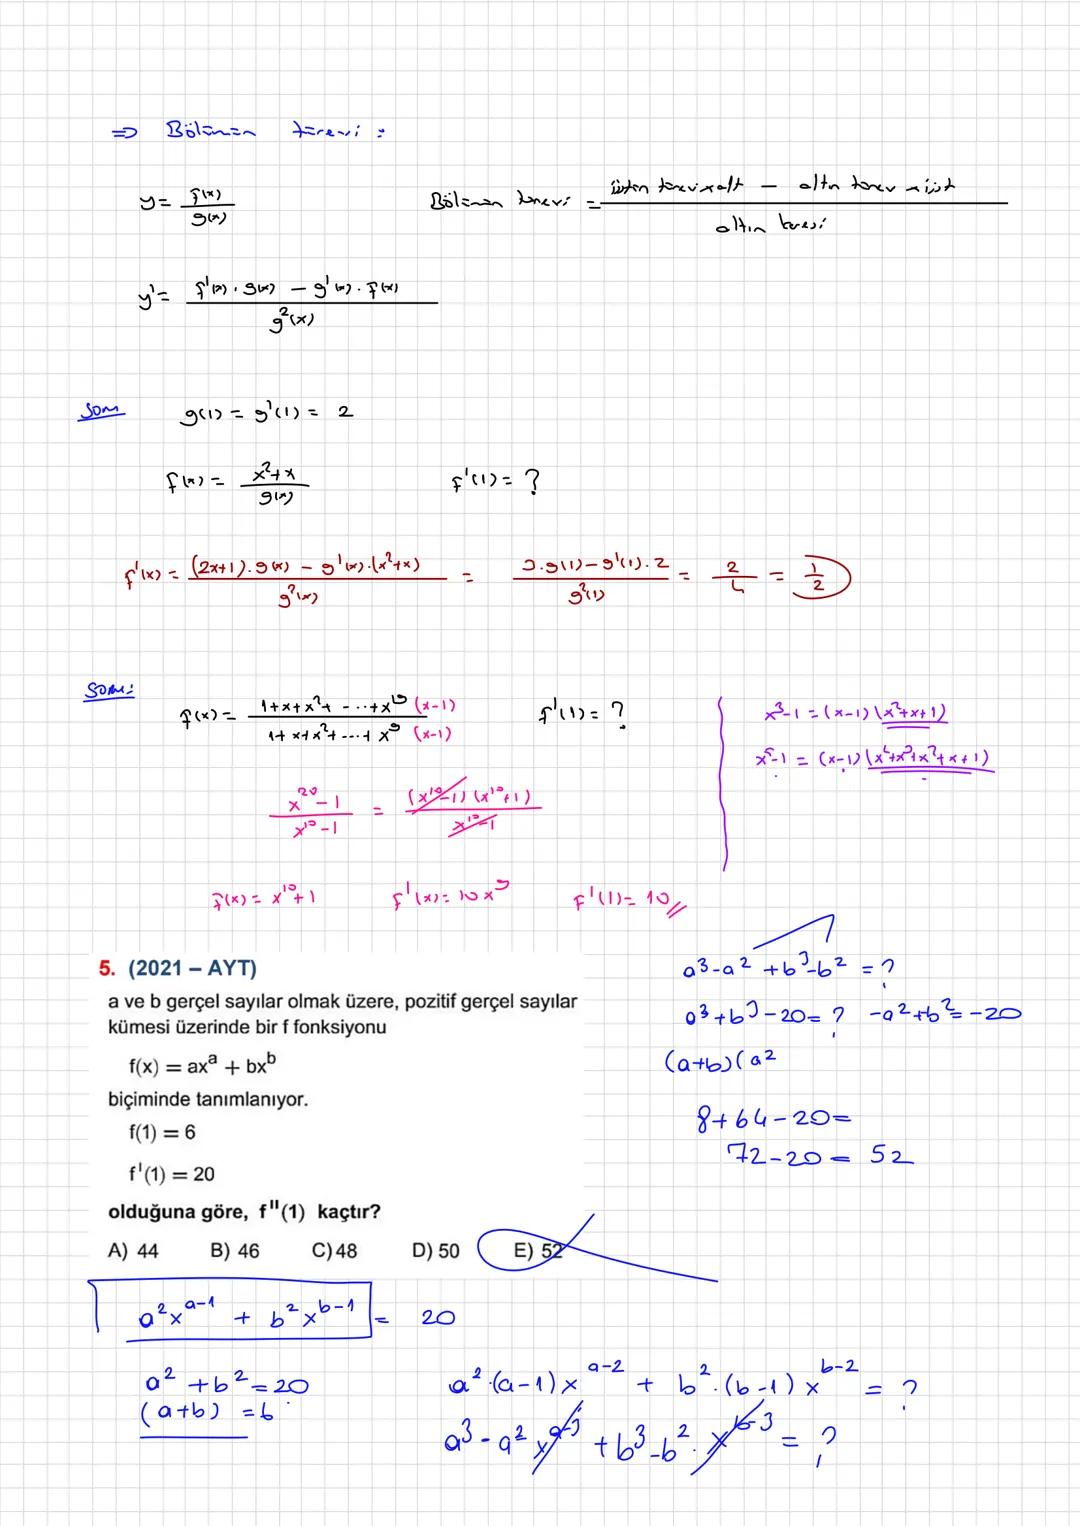 ⇒ Bölümün türevi :
y = f(x)/g(x)
Bölümün türevi = üstün türevi x alt − altın türev x üst / altın karesi
y' = f'(x) . g(x) − g'(x) . f(x) / g²(x)
Soru
g(1) = g'(1) = 2
f(x) = x²+x / g(x)
f'(1) = ?
f'(x) = (2x+1).g(x) − g'(x).(x²+x) / g²(x) = 3.g(1)−g'(1).2 / g²(1) = 2/4 = 1/2
Soru:
f(x) = 1+x+x²+ ---+x¹⁹ (x-1) / 1+x+x²+---+x⁹ (x-1)
f'(1) = ?
x³-1 = (x-1)(x²+x+1)
x⁵-1 = (x-1)(x⁴+x³+x²+x+1)
x²⁰-1 / x¹⁰-1 = (x¹⁰-1)(x¹⁰+1) / x¹⁰-1
f(x) = x¹⁰+1
f'(x) = 10x⁹
f'(1) = 10
5. (2021 – AYT)
a ve b gerçel sayılar olmak üzere, pozitif gerçel sayılar
kümesi üzerinde bir f fonksiyonu
f(x) = axᵃ + bxᵇ
biçiminde tanımlanıyor.
f(1) = 6
f'(1) = 20
olduğuna göre, f''(1) kaçtır?
A) 44 B) 46 C) 48 D) 50 E) 52
a³-a²+b³-b² = ?
a³+b³-20 = ? -a²+b² = -20
(a+b)(a²
8+64-20=
72-20 = 52
a²xᵃ⁻¹ + b²xᵇ⁻¹ = 20
a²+b²=20
(a+b) = 6
a².(a-1)xᵃ⁻² + b².(b-1)xᵇ⁻² = ?
a³-a² xᵃ⁻³ + b³-b². xᵇ⁻³ = ?